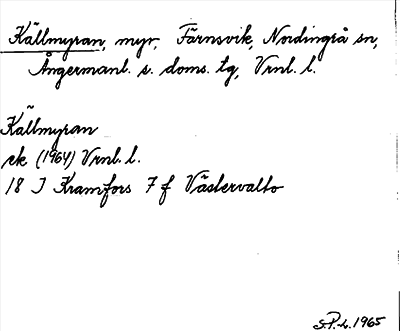 Källmyran, myr, Färnsvik, Nordingrå sn,
Ångermanl. s. doms. tg, Vrnl. l.
Källmyran
ek (1964) Vrnl. l.
18 J Kramfors 7 f Västervalto
S.P.-L. 1965